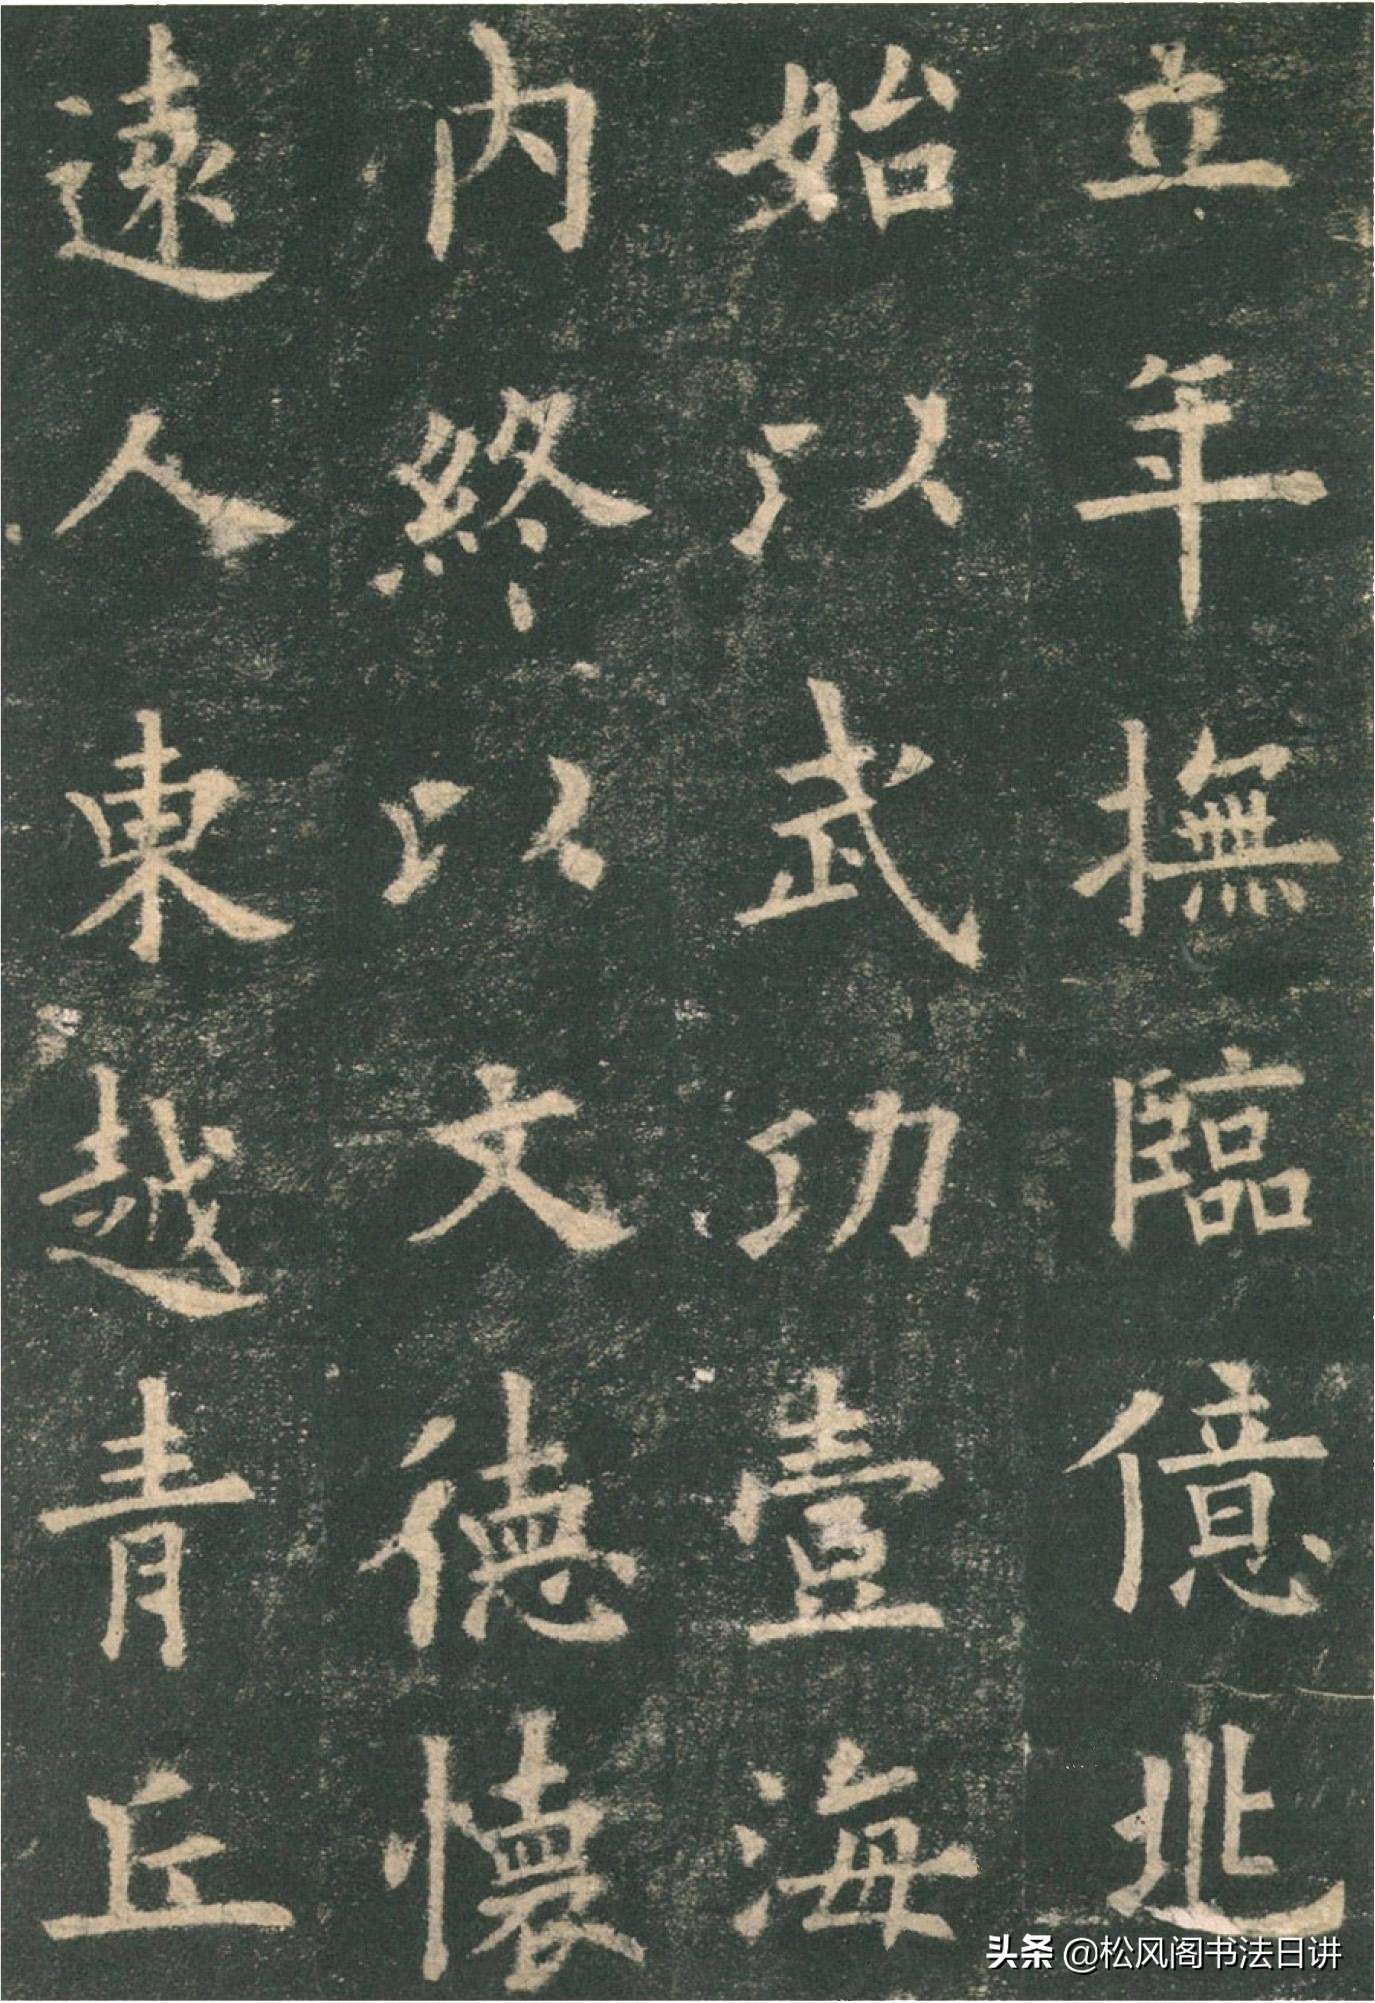 立年撫臨億兆
始以武功壹海
內終以文德懷
遠人東越青丘
头条 @松风阁书法日讲